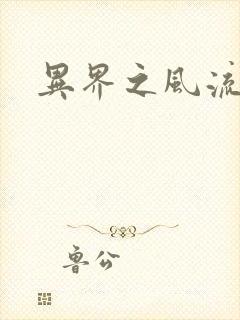 異界之風流
魯公